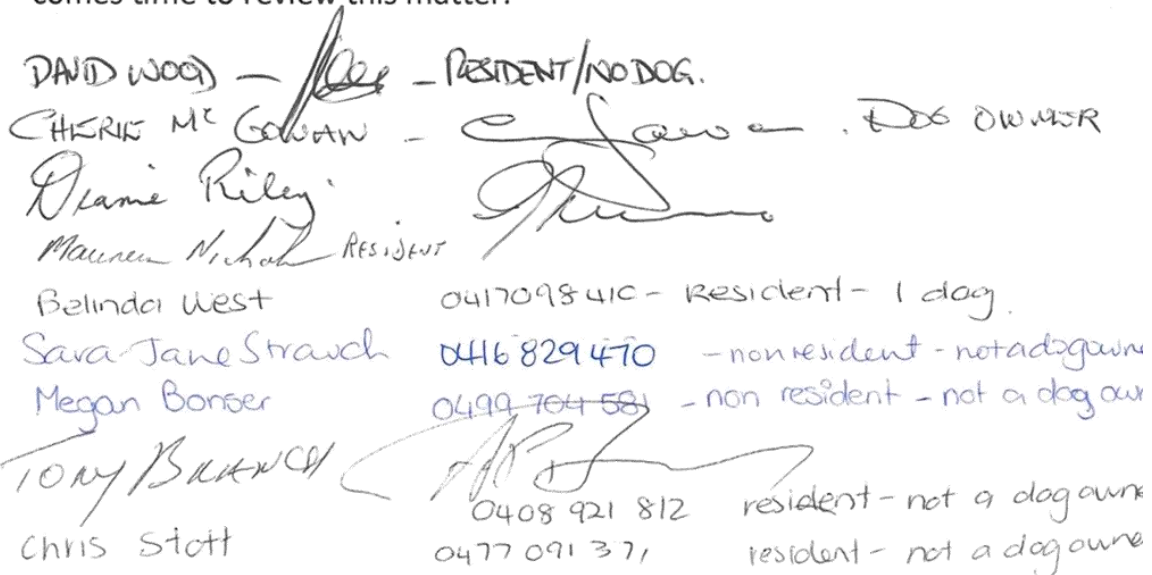 comes time to review this matter.
DAVID WOOD — — RESIDENT/NO DOG.
CHERIE Mc GOWAN - . DOG OWNER
Dianne Riley
Maureen RESIDENT
Belinda West 0417098410 - Resident - 1 dog.
Sara-Jane Strauch 0416 829 470 - non resident - not a dog owne
Megan Bonser 0499 704 581 - non resident - not a dog ow
TONY BRANCH
0408 921 812 resident - not a dog owne
Chris Stott 0477 091 371 resident - not a dog owne